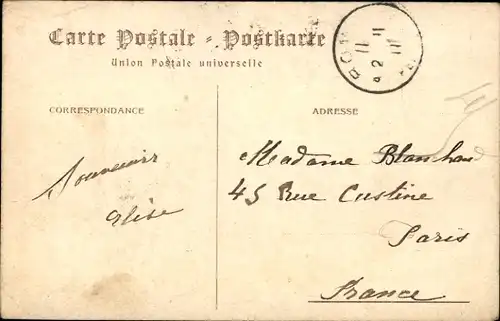 Carte Postale - Postkarte
Union Postale universelle
CORRESPONDANCE
ADRESSE
Souvenirs
Elise
Madame Blanchard
45 Rue Custine
Paris
France